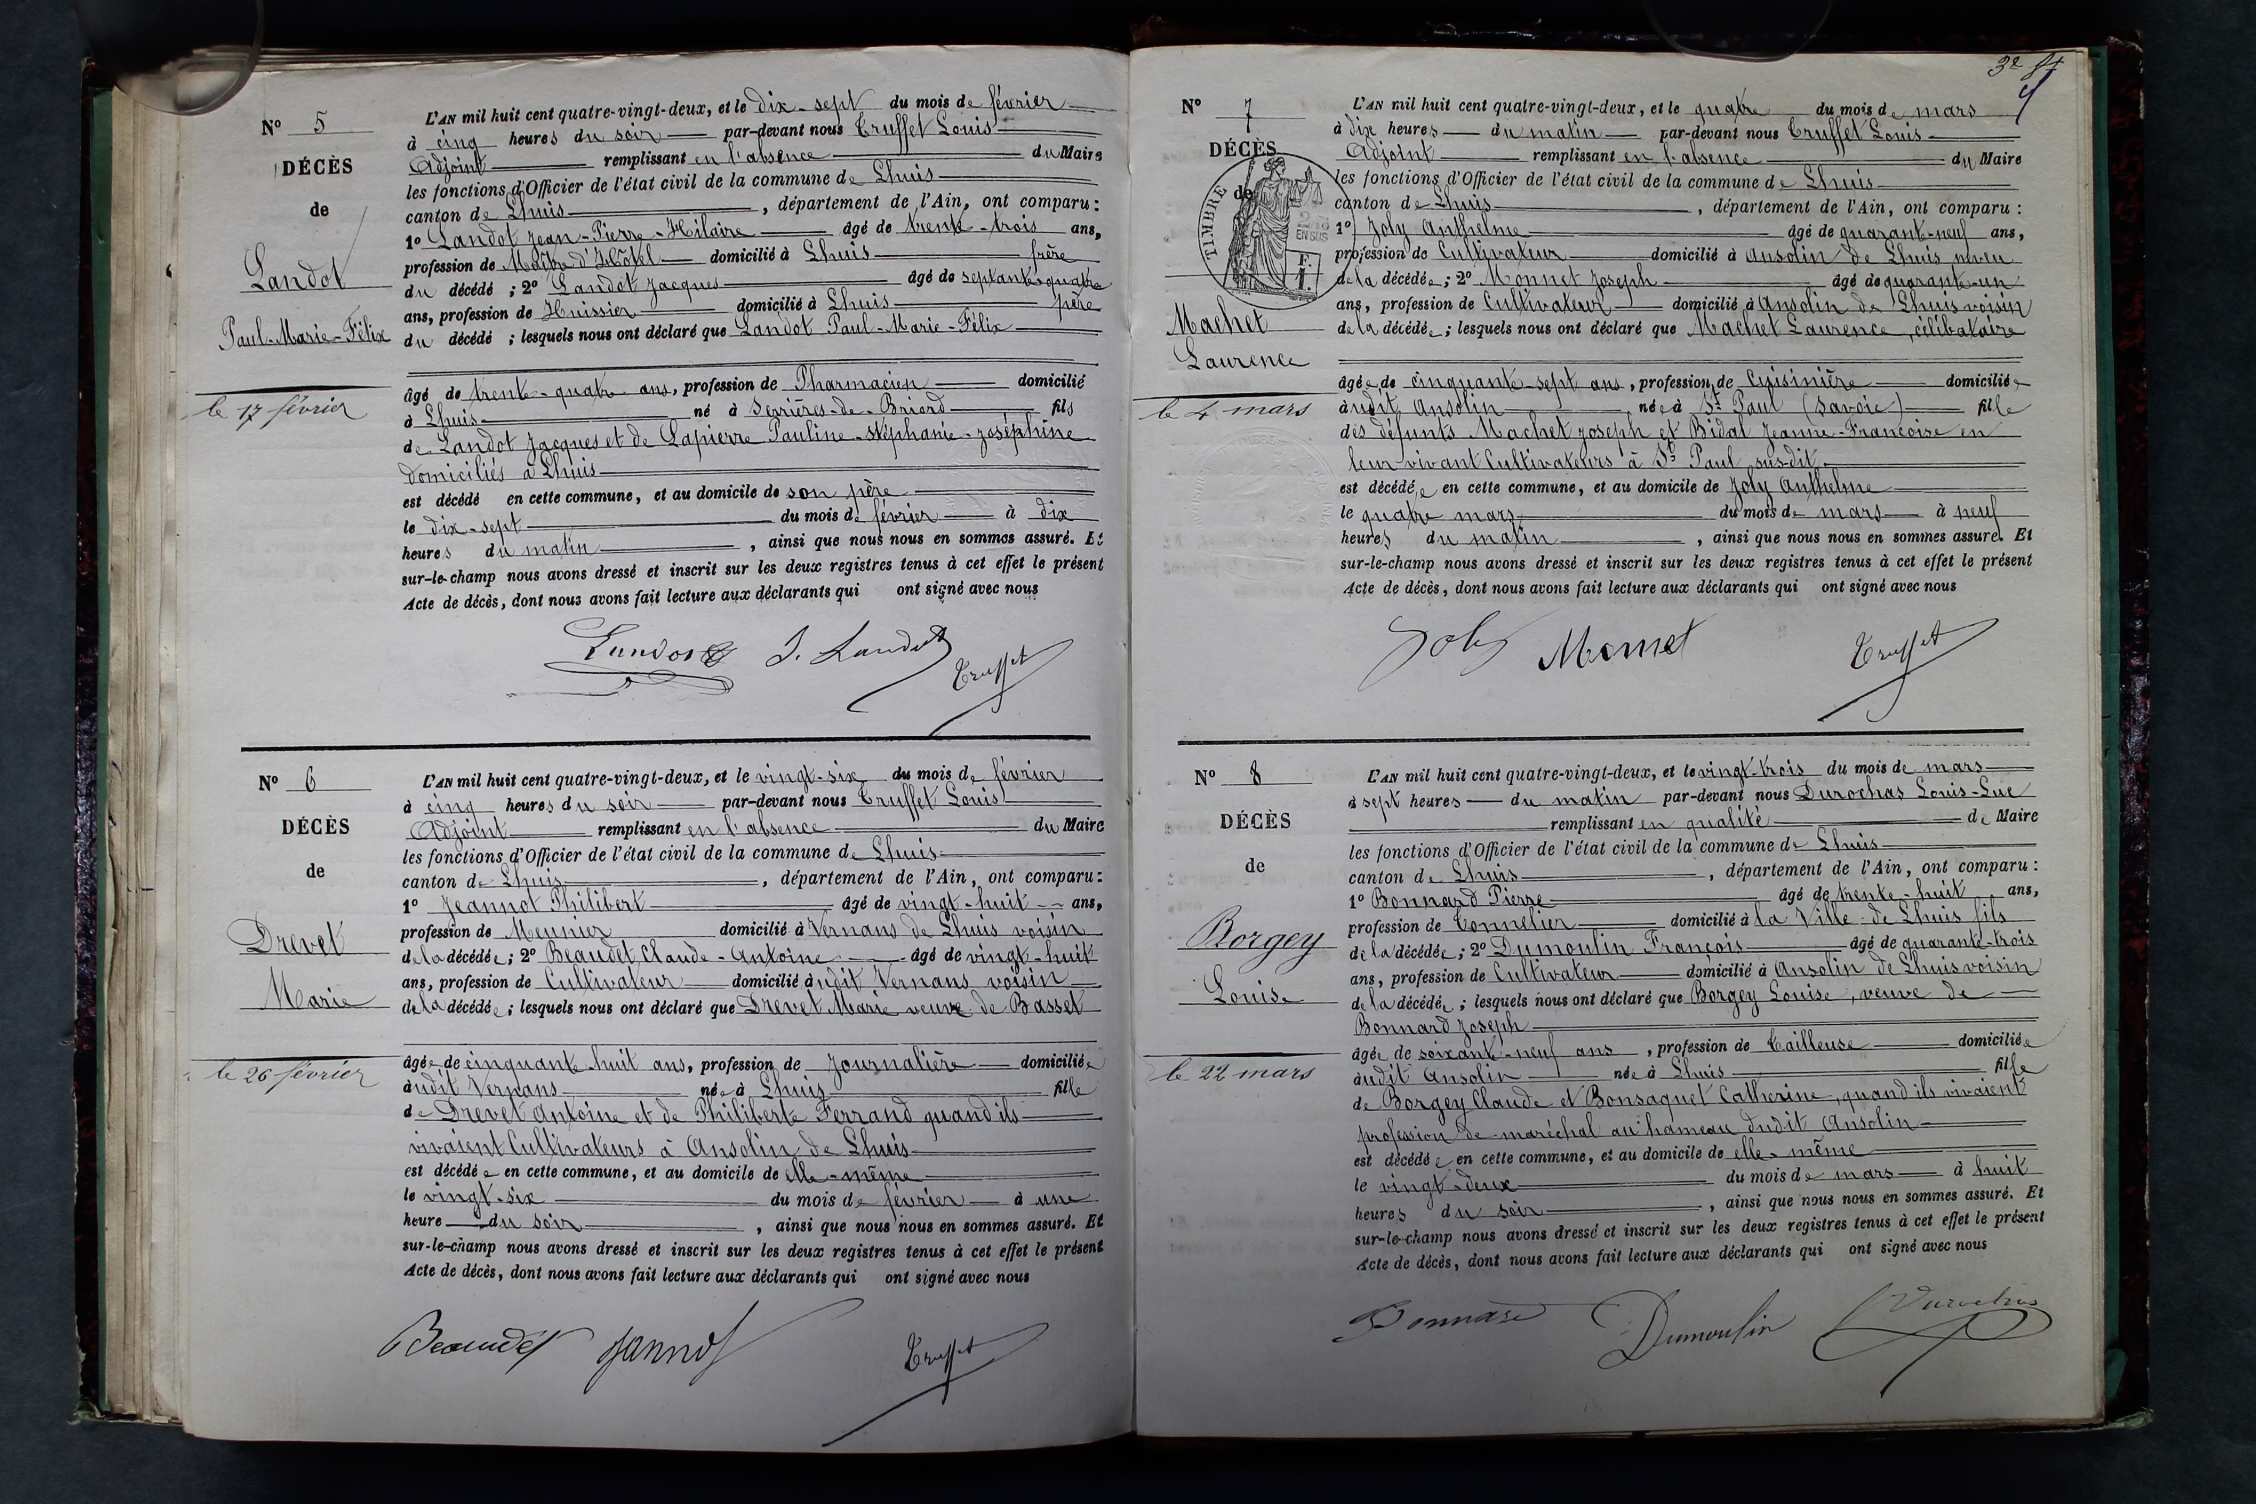 N° 5
DÉCÈS
de
Landot
Paul-Marie-Félix
le 17 février
L'AN mil huit cent quatre-vingt-deux, et le dix-sept du mois de février
à cinq heures du soir par-devant nous Truffet Louis
Adjoint remplissant en l'absence du Maire
les fonctions d'Officier de l'état civil de la commune de Lhuis
canton de Lhuis, département de l'Ain, ont comparu :
1° Landot Jean-Pierre-Hilaire âgé de trente-trois ans,
profession de Maître d'Hôtel domicilié à Lhuis frère
du décédé ; 2° Landot Jacques âgé de septante-quatre
ans, profession de Huissier domicilié à Lhuis père
du décédé ; lesquels nous ont déclaré que Landot Paul-Marie-Félix
âgé de trente-quatre ans, profession de Pharmacien domicilié
à Lhuis né à Serrières-de-Briord fils
de Landot Jacques et de Lapierre Pauline-Stéphanie-Joséphine
domiciliés à Lhuis
est décédé en cette commune, et au domicile de son père
le dix-sept du mois de février à dix
heures du matin, ainsi que nous nous en sommes assuré. Et
sur-le-champ nous avons dressé et inscrit sur les deux registres tenus à cet effet le présent
Acte de décès, dont nous avons fait lecture aux déclarants qui ont signé avec nous
Landot J. Landot Truffet
N° 6
DÉCÈS
de
Drevet
Marie
le 26 février
L'AN mil huit cent quatre-vingt-deux, et le vingt-six du mois de février
à cinq heures du soir par-devant nous Truffet Louis
Adjoint remplissant en l'absence du Maire
les fonctions d'Officier de l'état civil de la commune de Lhuis
canton de Lhuis, département de l'Ain, ont comparu :
1° Jeannot Philibert âgé de vingt-huit ans,
profession de Meunier domicilié à Vernans de Lhuis voisin
de la décédée ; 2° Beaudet Claude-Antoine âgé de vingt-huit
ans, profession de Cultivateur domicilié àudit Vernans voisin
de la décédée ; lesquels nous ont déclaré que Drevet Marie veuve de Basset
âgée de cinquante-huit ans, profession de Journalière domiciliée
àudit Vernans née à Lhuis fille
de Drevet Antoine et de Philiberte Ferrand quand ils
vivaient Cultivateurs à Ansolin de Lhuis
est décédée en cette commune, et au domicile de elle-même
le vingt-six du mois de février à une
heure du soir, ainsi que nous nous en sommes assuré. Et
sur-le-champ nous avons dressé et inscrit sur les deux registres tenus à cet effet le présent
Acte de décès, dont nous avons fait lecture aux déclarants qui ont signé avec nous
Beaudet Jannot Truffet
N° 7
DÉCÈS
de
TIMBRE
Machet
Laurence
le 4 mars
L'AN mil huit cent quatre-vingt-deux, et le quatre du mois de mars
à dix heures du matin par-devant nous Truffet Louis
Adjoint remplissant en l'absence du Maire
les fonctions d'Officier de l'état civil de la commune de Lhuis
canton de Lhuis, département de l'Ain, ont comparu :
1° Joly Anthelme âgé de quarante-neuf ans,
profession de Cultivateur domicilié à Ansolin de Lhuis neveu
de la décédée ; 2° Monnet Joseph âgé de quarante-un
ans, profession de Cultivateur domicilié à Ansolin de Lhuis voisin
de la décédée ; lesquels nous ont déclaré que Machet Laurence, célibataire
âgée de cinquante-sept ans, profession de Cuisinière domiciliée
àudit Ansolin née à St Paul (Savoie) fille
des défunts Machet Joseph et Bidal Jeanne-Françoise en
leur vivant Cultivateurs à St Paul susdit
est décédée en cette commune, et au domicile de Joly Anthelme
le quatre mars du mois de mars à neuf
heures du matin, ainsi que nous nous en sommes assuré. Et
sur-le-champ nous avons dressé et inscrit sur les deux registres tenus à cet effet le présent
Acte de décès, dont nous avons fait lecture aux déclarants qui ont signé avec nous
Joly Monnet Truffet
N° 8
DÉCÈS
de
Borgey
Louise
le 22 mars
L'AN mil huit cent quatre-vingt-deux, et le vingt-trois du mois de mars
à sept heures du matin par-devant nous Durochas Louis-Luc
remplissant en qualité de Maire
les fonctions d'Officier de l'état civil de la commune de Lhuis
canton de Lhuis, département de l'Ain, ont comparu :
1° Bonnard Pierre âgé de trente-huit ans,
profession de Tonnelier domicilié à la Ville de Lhuis fils
de la décédée ; 2° Dumoulin François âgé de quarante-trois
ans, profession de Cultivateur domicilié à Ansolin de Lhuis voisin
de la décédée ; lesquels nous ont déclaré que Borgey Louise, veuve de
Bonnard Joseph
âgée de soixante-neuf ans, profession de Tailleuse domiciliée
àudit Ansolin née à Lhuis fille
de Borgey Claude et Bonsaquet Catherine, quand ils vivaient
profession de maréchal au hameau dudit Ansolin
est décédée en cette commune, et au domicile de elle-même
le vingt-deux du mois de mars à huit
heures du soir, ainsi que nous nous en sommes assuré. Et
sur-le-champ nous avons dressé et inscrit sur les deux registres tenus à cet effet le présent
Acte de décès, dont nous avons fait lecture aux déclarants qui ont signé avec nous
Bonnard Dumoulin Durochas